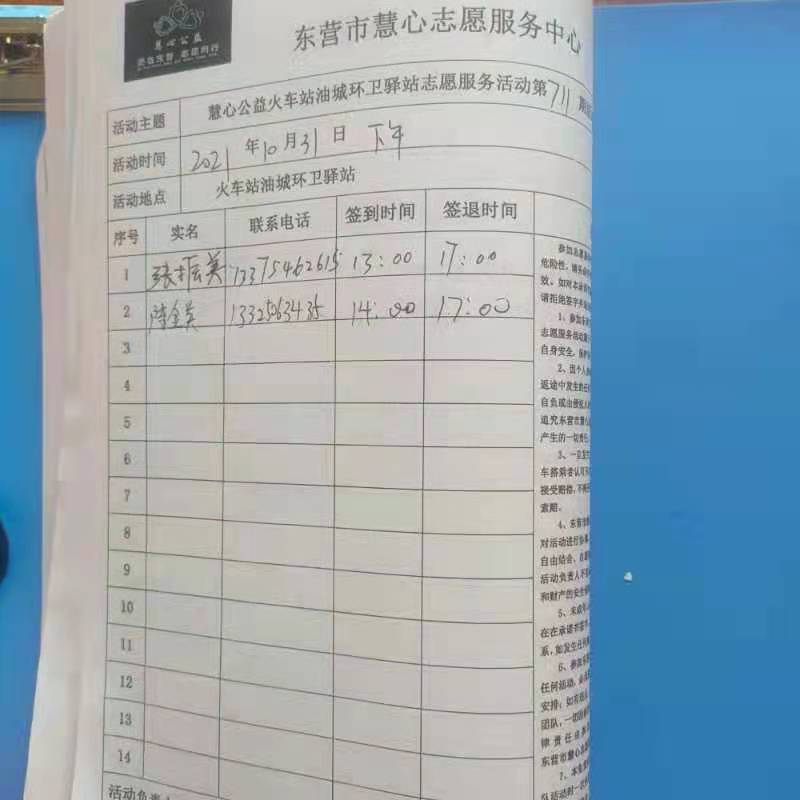 慧心公益
东营市慧心志愿服务中心
活动主题 慧心公益火车站油城环卫驿站志愿服务活动第711期
活动时间 2021年10月31日 下午
活动地点 火车站油城环卫驿站
序号 实名 联系电话 签到时间 签退时间
1 张振英 13375462615 13:00 17:00
2 陈金英 13325063435 14:00 17:00
3
4
5
6
7
8
9
10
11
12
13
14
活动负责
危险性，
效。如对本
请拒绝签字
1、参加
志愿服务活动
自身安全，
2、因个人
返途中发生的任
自负或由
追究东营市慧心
产生的一切责任
3、一旦发
车搭乘者认可
接受赔偿，不
索赔。
4、东营市
对活动进行
自由结合、自愿
活动负责人不
和财产的安全
5、未成年
在在承诺书
系，如发生任何
6、参加
任何活动，必须
安排；如有
团队，一切
律责任由
东营市慧心志
7、本
队活动时一